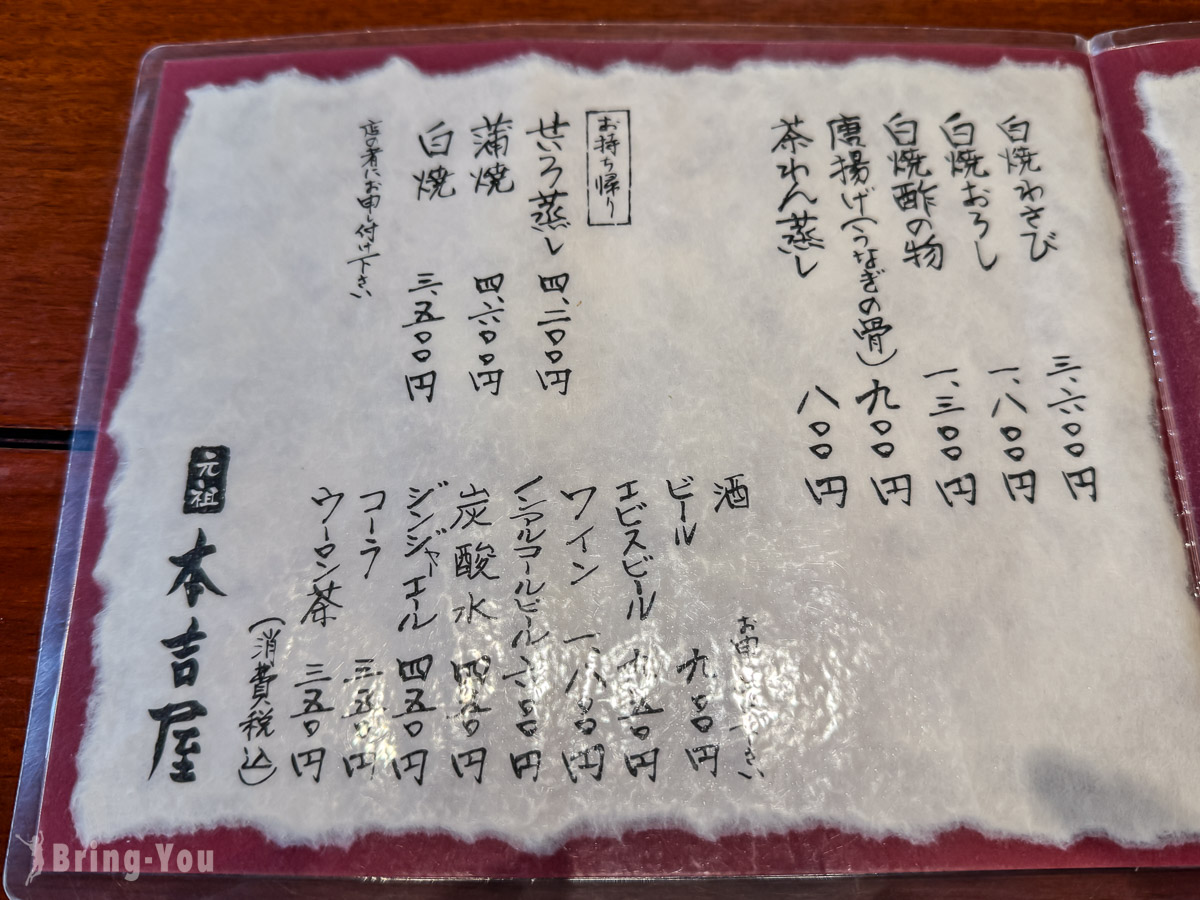 白焼わさび 三、六〇〇円
白焼おろし 一、八〇〇円
白焼酢の物 一、三〇〇円
唐揚げ(うなぎの骨) 九〇〇円
茶わん蒸し 八〇〇円
お持ち帰り
せいろ蒸し 四、二〇〇円
蒲焼 四、六〇〇円
白焼 三、五〇〇円
店の者にお申し付け下さい
酒
ビール 九〇〇円
エビスビール 九五〇円
ワイン 一、八〇〇円
ノンアルコールビール 六〇〇円
炭酸水 四五〇円
ジンジャーエール 四五〇円
コーラ 三五〇円
ウーロン茶 三五〇円
(消費税込)
元祖 本吉屋
Bring-You